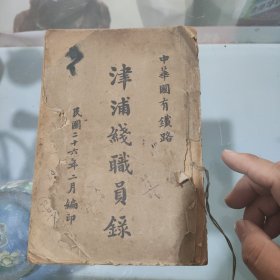 中華國有鐵路
津浦綫職員錄
民國二十六年二月編印